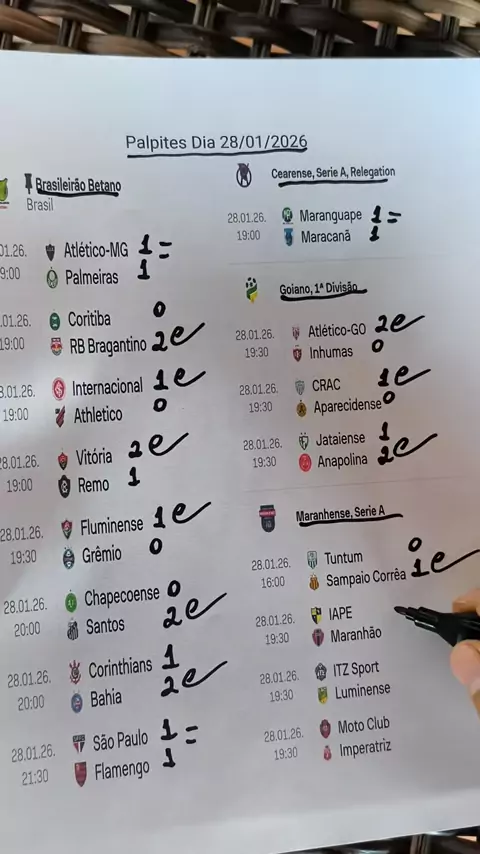 Palpites Dia 28/01/2026
Brasileirão Betano
Brasil
01.26. Atlético-MG 1 =
9:00 Palmeiras 1
.01.26. Coritiba 0
19:00 RB Bragantino 2 e
8.01.26. Internacional 1 e
19:00 Athletico 0
28.01.26. Vitória 2 e
19:00 Remo 1
28.01.26. Fluminense 1 e
19:30 Grêmio 0
28.01.26. Chapecoense 0
20:00 Santos 2 e
28.01.26. Corinthians 1
20:00 Bahia 2 e
28.01.26. São Paulo 1 =
21:30 Flamengo 1
Cearense, Serie A, Relegation
28.01.26. Maranguape 1 =
19:00 Maracanã 1
Goiano, 1ª Divisão
28.01.26. Atlético-GO 2 e
19:30 Inhumas 0
28.01.26. CRAC 1 e
19:30 Aparecidense 0
28.01.26. Jataiense 1
19:30 Anapolina 2 e
Maranhense, Serie A
28.01.26. Tuntum 0
16:00 Sampaio Corrêa 1 e
28.01.26. IAPE
19:30 Maranhão
28.01.26. ITZ Sport
19:30 Luminense
28.01.26. Moto Club
19:30 Imperatriz